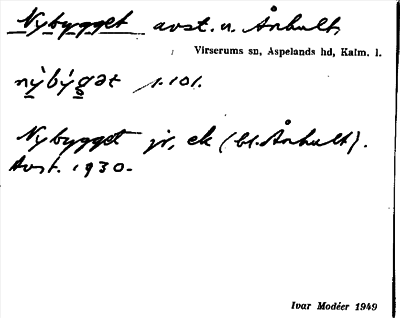 Nybygget avst. u. Århult,
Virserums sn, Aspelands hd, Kalm. l.
nỳbýgət 1.101.
Nybygget jr, ek (bl. Århult).
Avst. 1930.
Ivar Modéer 1949